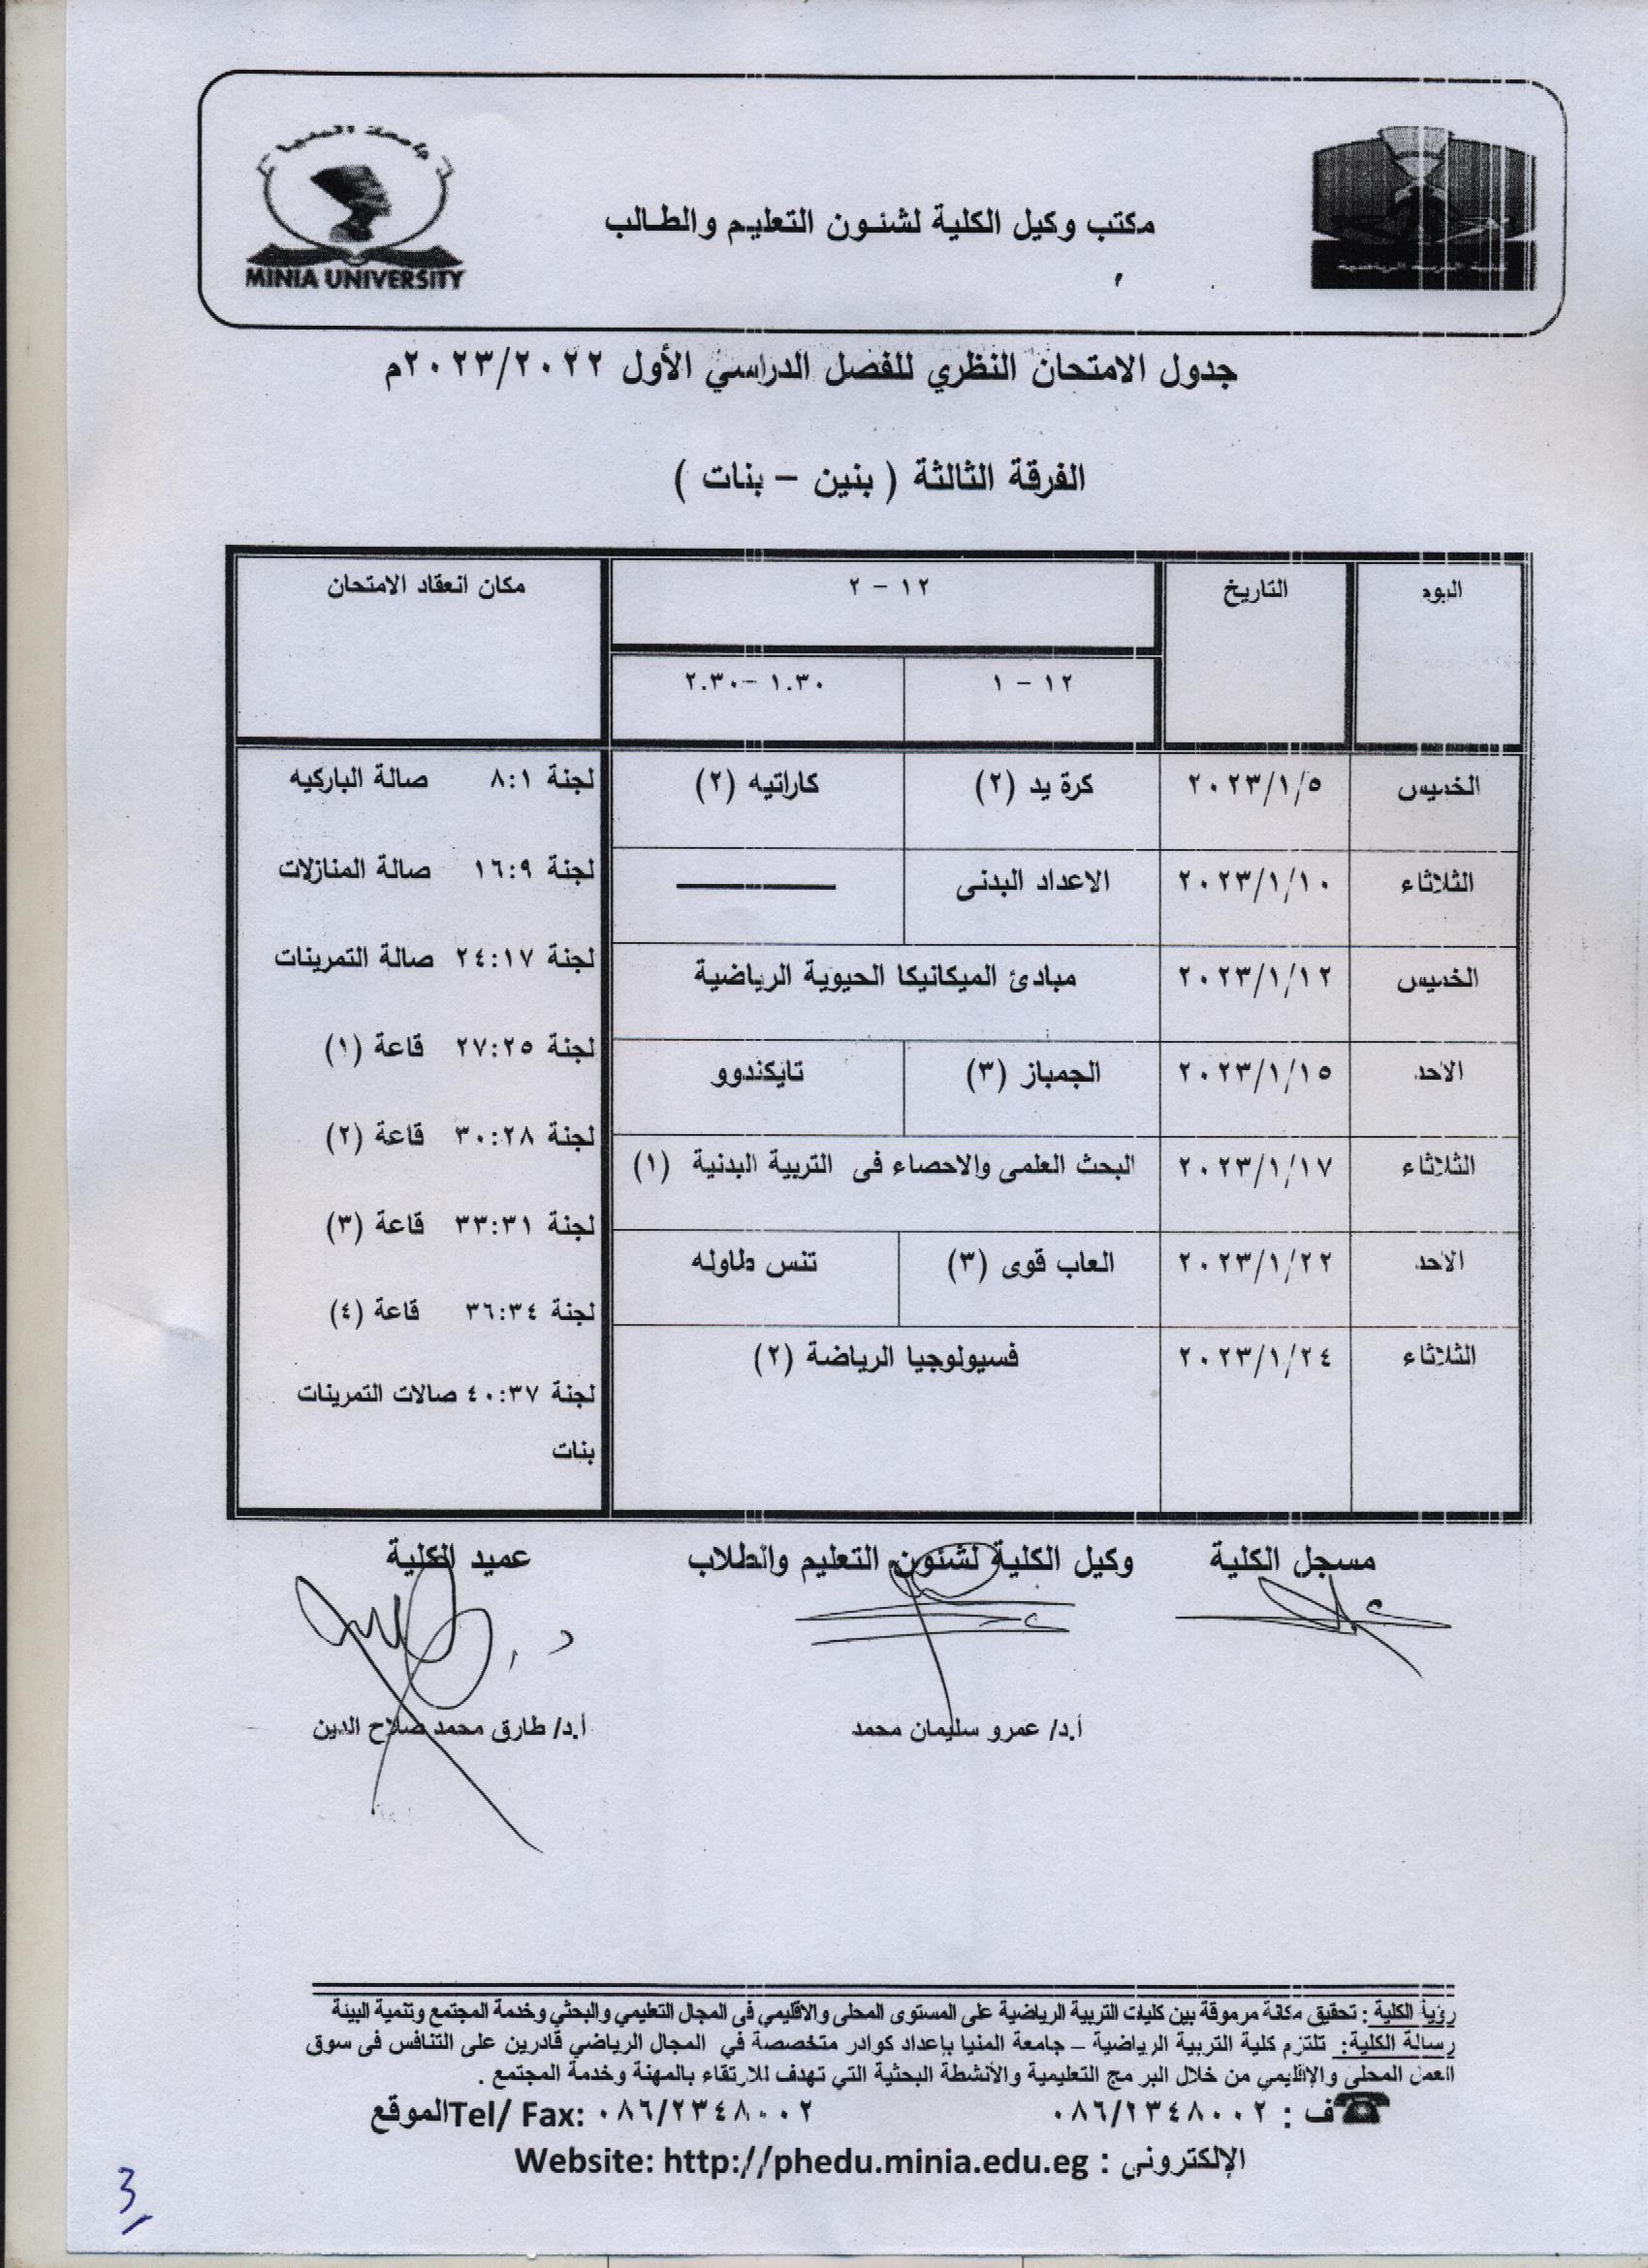 جامعة المنيا
MINIA UNIVERSITY
مكتب وكيل الكلية لشئون التعليم والطالب
كلية التربية الرياضية
جدول الامتحان النظري للفصل الدراسي الأول ٢٠٢٣/٢٠٢٢م
الفرقة الثالثة ( بنين – بنات )
اليوم التاريخ ١٢ – ٢ مكان انعقاد الامتحان
١٢ – ١ ١.٣٠ –٢.٣٠
الخميس ٢٠٢٣/١/٥ كرة يد (٢) كاراتيه (٢)
الثلاثاء ٢٠٢٣/١/١٠ الاعداد البدنى
الخميس ٢٠٢٣/١/١٢ مبادئ الميكانيكا الحيوية الرياضية
الاحد ٢٠٢٣/١/١٥ الجمباز (٣) تايكندوو
الثلاثاء ٢٠٢٣/١/١٧ البحث العلمى والاحصاء فى التربية البدنية (١)
الاحد ٢٠٢٣/١/٢٢ العاب قوى (٣) تنس طاوله
الثلاثاء ٢٠٢٣/١/٢٤ فسيولوجيا الرياضة (٢)
لجنة ٨:١ صالة الباركيه
لجنة ١٦:٩ صالة المنازلات
لجنة ٢٤:١٧ صالة التمرينات
لجنة ٢٧:٢٥ قاعة (١)
لجنة ٣٠:٢٨ قاعة (٢)
لجنة ٣٣:٣١ قاعة (٣)
لجنة ٣٦:٣٤ قاعة (٤)
لجنة ٤٠:٣٧ صالات التمرينات
بنات
مسجل الكلية وكيل الكلية لشئون التعليم والطلاب عميد الكلية
أ.د/ عمرو سليمان محمد أ.د/ طارق محمد صلاح الدين
رؤيا الكلية : تحقيق مكانة مرموقة بين كليات التربية الرياضية على المستوى المحلى والاقليمي فى المجال التعليمي والبحثي وخدمة المجتمع وتنمية البيئة
رسالة الكلية: تلتزم كلية التربية الرياضية – جامعة المنيا بإعداد كوادر متخصصة في المجال الرياضي قادرين على التنافس فى سوق
العمل المحلى والإقليمي من خلال البرامج التعليمية والأنشطة البحثية التي تهدف للارتقاء بالمهنة وخدمة المجتمع .
☎ف : ٠٨٦/٢٣٤٨٠٠٢ Tel/ Fax: ٠٨٦/٢٣٤٨٠٠٢الموقع
الإلكترونى : Website: http://phedu.minia.edu.eg
3